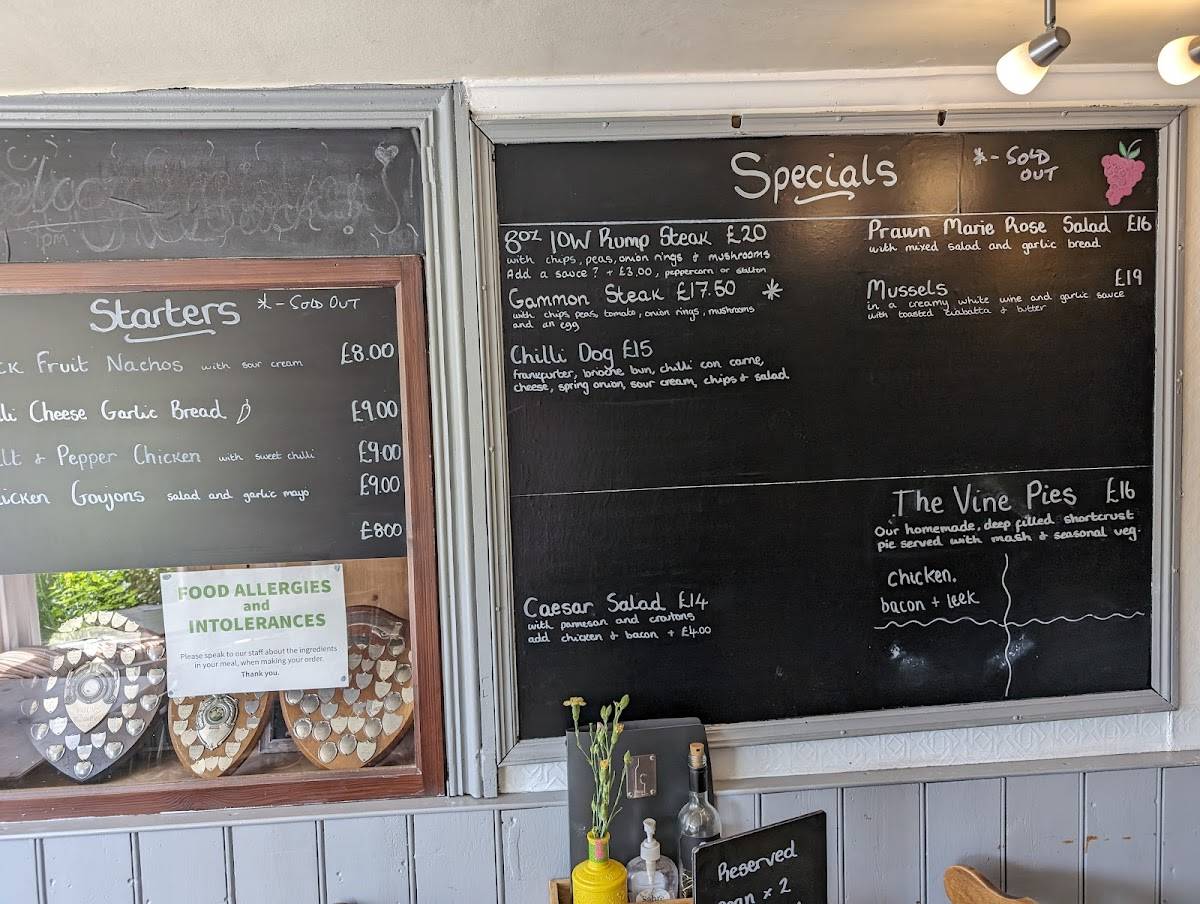 Starters * - Sold Out
Fruit Nachos with sour cream £8.00
Cheese Garlic Bread £9.00
& Pepper Chicken with sweet chilli £9.00
Goujons salad and garlic mayo £9.00
£8.00
FOOD ALLERGIES
and
INTOLERANCES
Please speak to our staff about the ingredients
in your meal, when making your order.
Thank you.
Specials
* - Sold
Out
8oz 10W Rump Steak £20
with chips, peas, onion rings & mushrooms
Add a sauce? + £3.00, peppercorn or stilton
Gammon Steak £17.50 *
with chips, peas, tomato, onion rings, mushrooms
and an egg
Chilli Dog £15
frankfurter, brioche bun, chilli con carne,
cheese, spring onion, sour cream, chips & salad
Caesar Salad £14
with parmesan and croutons
add chicken & bacon + £4.00
Prawn Marie Rose Salad £16
with mixed salad and garlic bread
Mussels £19
in a creamy white wine and garlic sauce
with toasted ciabatta & butter
The Vine Pies £16
Our homemade, deep filled shortcrust
pie served with mash & seasonal veg.
Chicken.
bacon + leek
Reserved
x 2